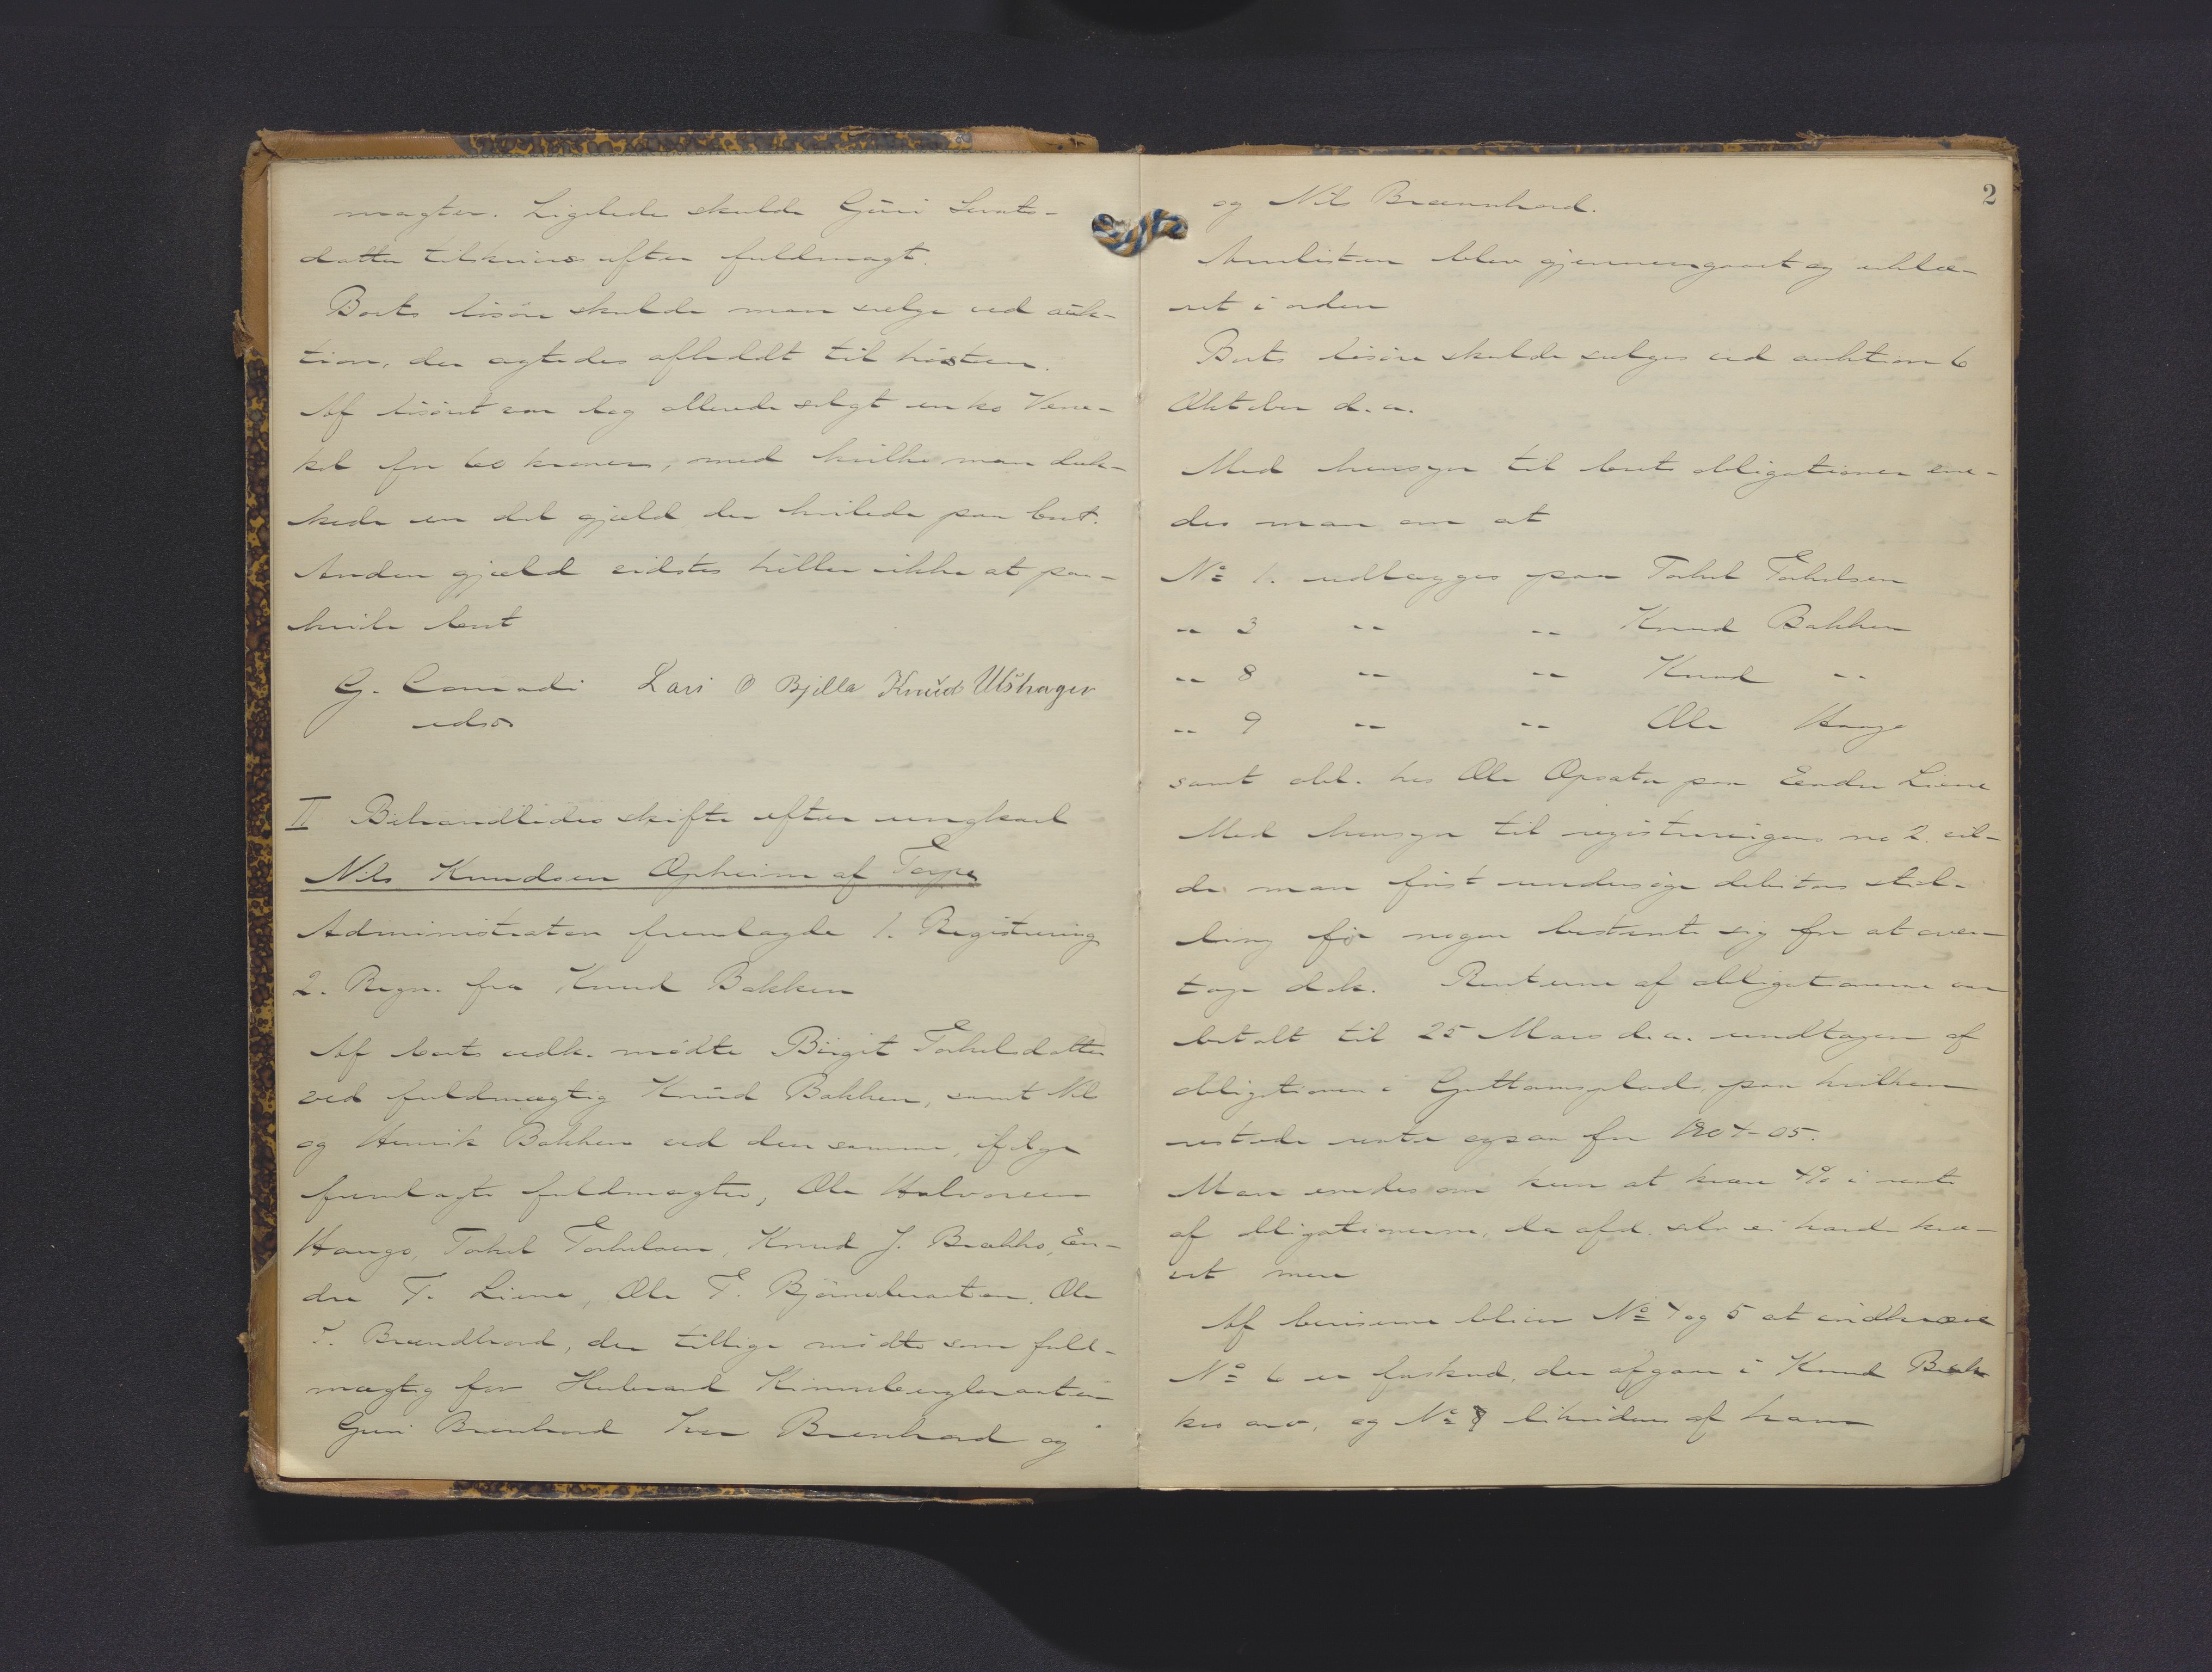 magter. Ligeledes skulde Guri Svents-
datter tilskrives efter fuldmagt.
Boets løsøre skulde man sælge ved auk-
tion, der agtedes afholdt til høsten.
Af løsøret var dog allerede solgt en ko
for 60 kroner, med hvilke man dæk-
kede en del gjæld der hvilede paa boet.
Anden gjæld vidstes heller ikke at paa-
hvile boet
G. Conradi Lars O Bjella Knud Ulshagen
udso
II Behandledes skifte efter ungkarl
Nils Knudsen Opheim af Torpe
Administrator fremlagde 1. Registrering
2. Regn. fra Knud Bakken
Af boets vedk. mødte Birgit Torkelsdatter
ved fuldmægtig Knud Bakken, samt Nil
og Henrik Bakken ved den samme, ifølge
fremlagte fuldmagter, Ole Halvorsen
Haugo, Torkel Torkelsen, Knud J. Brekko, En-
dre T. Liene, Ole T. Bjørnebraaten, Ole
T. Brændhord, der tillige mødte som fuld-
mægtig for
Guri Brenhord Iver Brenhord og
2
og Nils Brennhord.
Arvelisten blev gjennemgaaet og erklæ-
ret i orden
Boets løsøre skulde sælges ved auktion 6
Oktober d.a.
Med hensyn til boets obligationer ene-
des man om at
No 1. udlægges paa Torkel Torkelsen
" 3 " " Knud Bakken
" 8 " " Knud "
" 9 " " Ole Haugo
samt obl. hos Ole Opsata paa Eendre Liene
Med hensyn til registreringens no 2 vil-
de man først undersøge debitors stil-
ling før nogen bestemte sig for at over-
tage dok. Renterne af obligationerne var
betalt til 25 Mars d.a. undtagen af
obligationen i Guttormsplads, paa hvilken
restede rente ogsaa for 1904-05.
Man enedes om kun at kræve 4% i rente
af obligationerne, da afd. selv ei havde kræ-
vet mere
Af beviserne bliver No 4 og 5 at indkræve
No 6 er forskud, der afgaar i Knud Bak
kes arv, og No 7 likvideres af ham